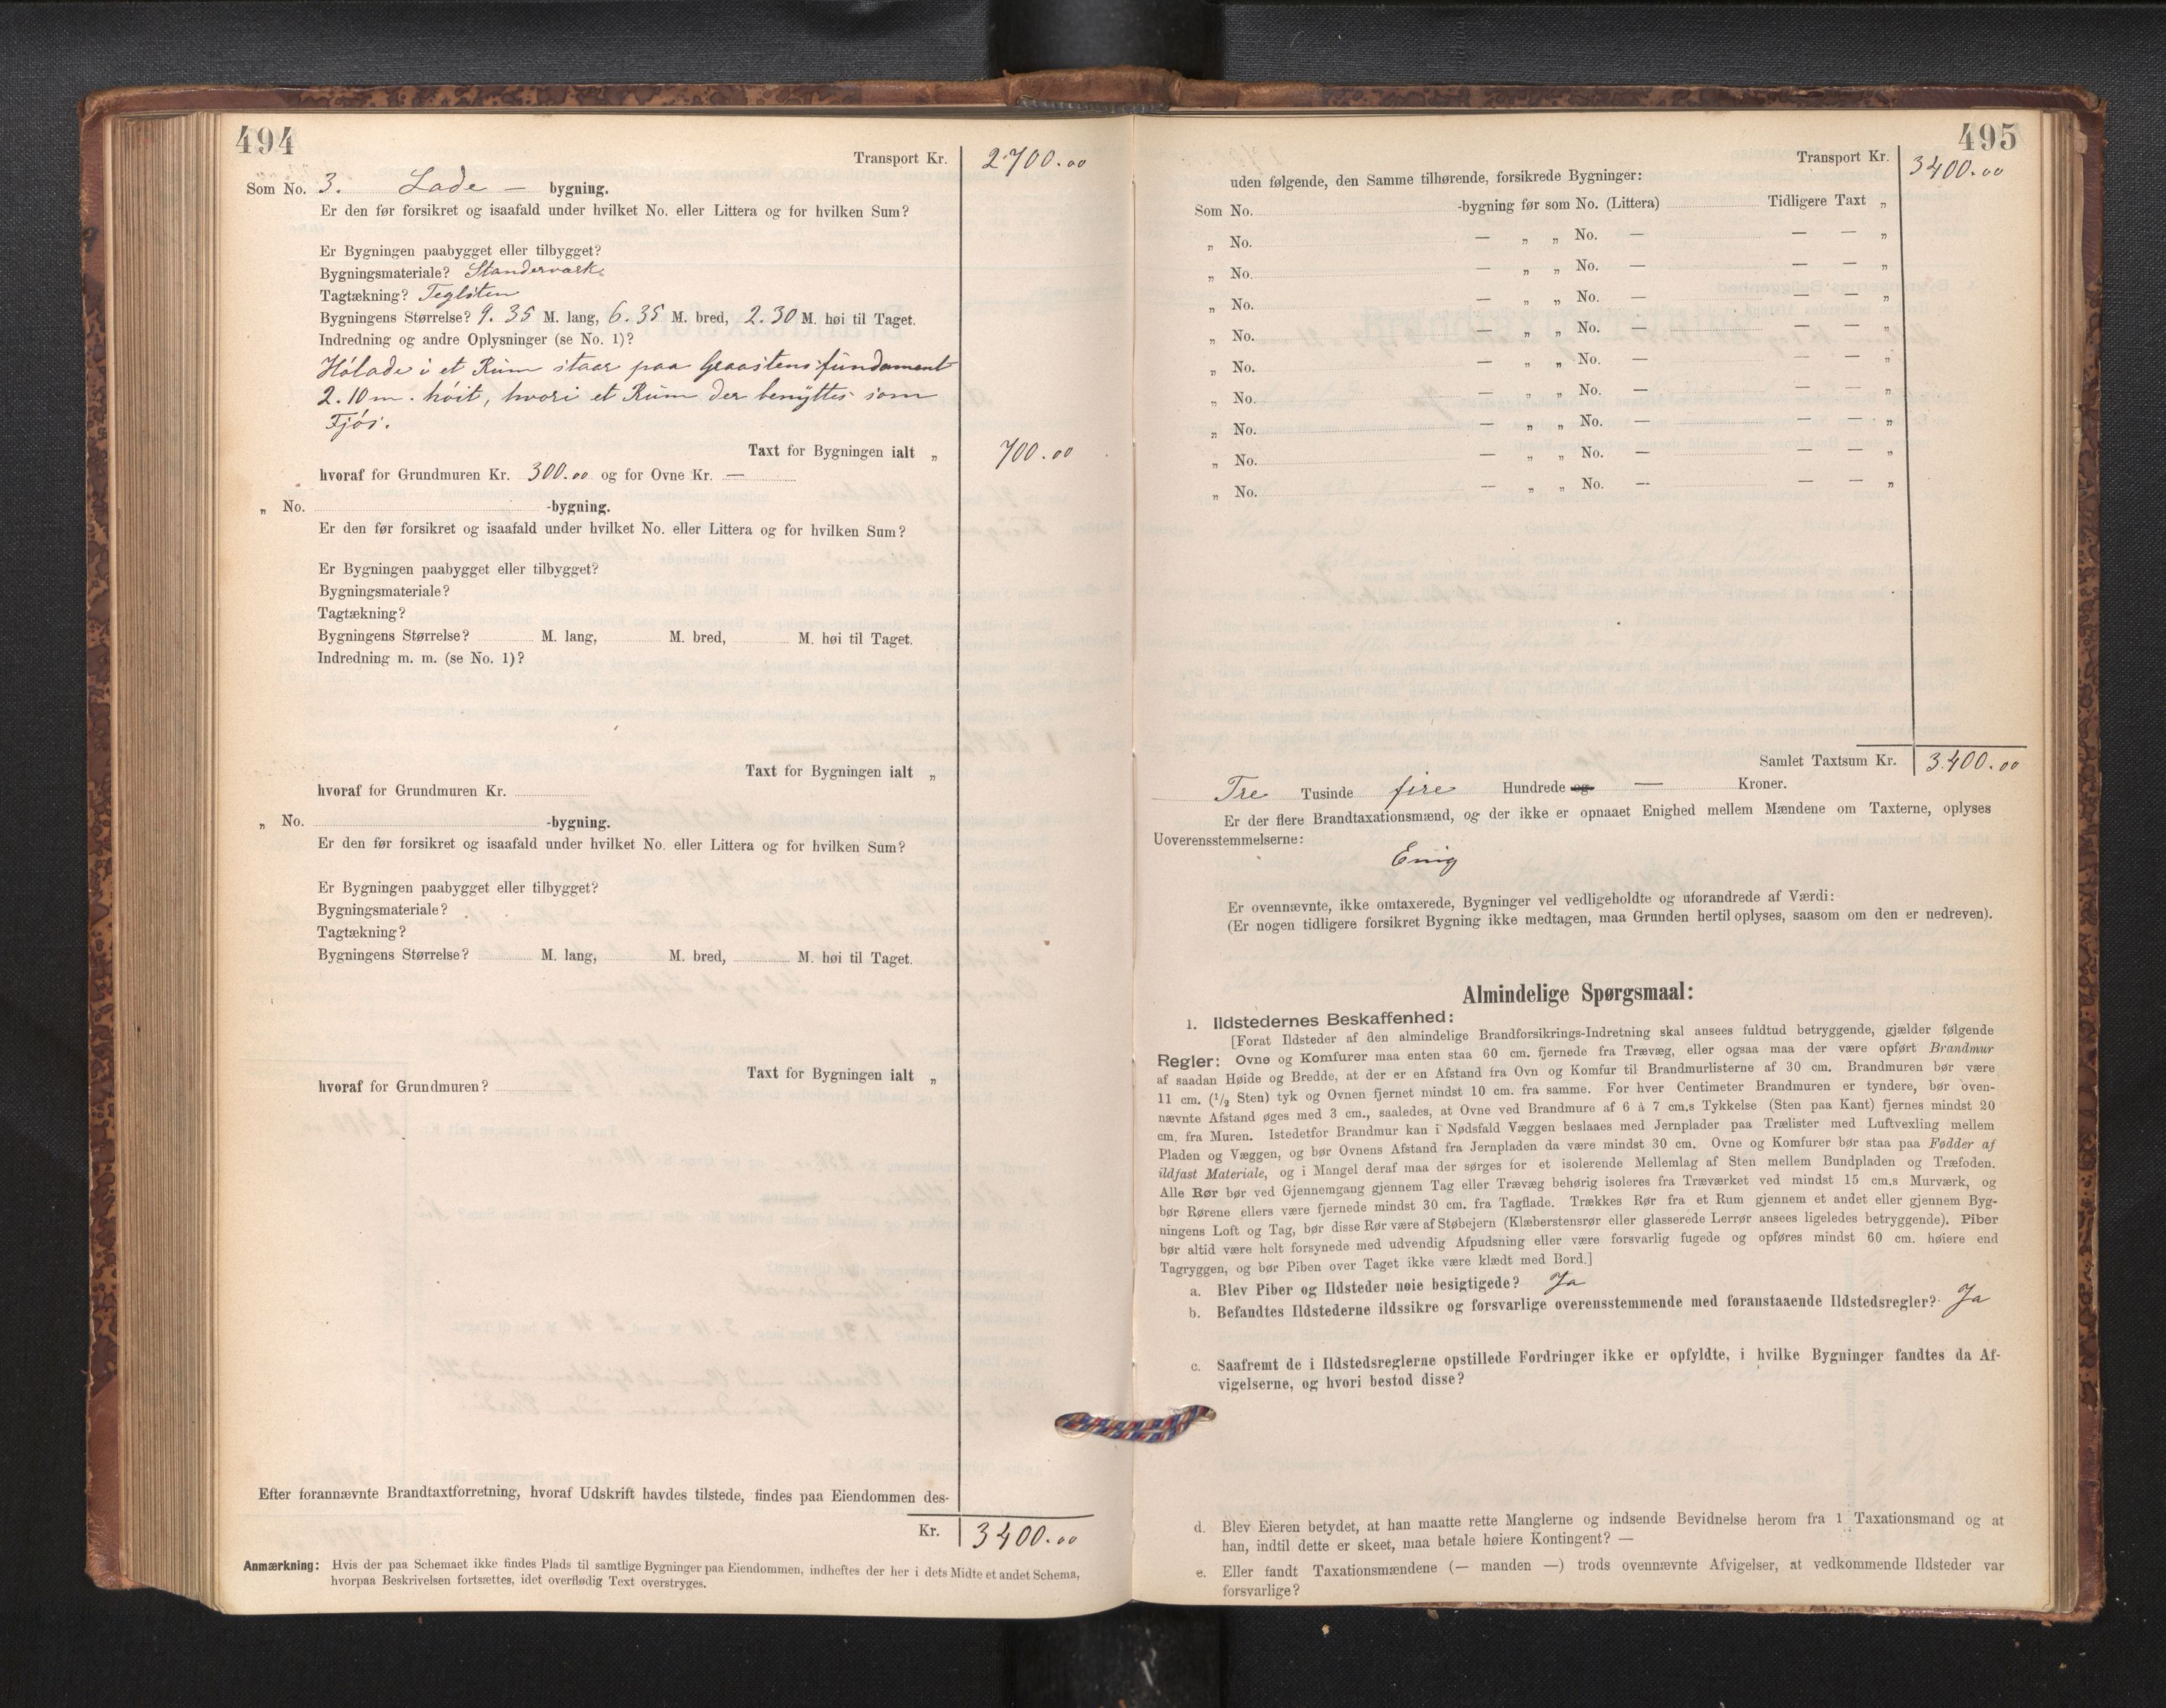 494
Transport Kr. 2700.00
Som No. 3. Lade — bygning.
Er den før forsikret og isaafald under hvilket No. eller Littera og for hvilken Sum?
Er Bygningen paabygget eller tilbygget?
Bygningsmateriale? Standerværk.
Tagtækning? Teglsten
Bygningens Størrelse? 9.35 M. lang, 6.35 M. bred, 2.30 M. høi til Taget.
Indredning og andre Oplysninger (se No. 1)?
Hölade i et Rum staar paa Graastensfundament
2.10 m. höit, hvori et Rum der benyttes som
Fjös.
Taxt for Bygningen ialt „ 700.00
hvoraf for Grundmuren Kr. 300.00 og for Ovne Kr. —
„ No. -bygning.
Er den før forsikret og isaafald under hvilket No. eller Littera og for hvilken Sum?
Er Bygningen paabygget eller tilbygget?
Bygningsmateriale?
Tagtækning?
Bygningens Størrelse? M. lang, M. bred, M. høi til Taget.
Indredning m. m. (se No. 1)?
Taxt for Bygningen ialt „
hvoraf for Grundmuren Kr.
„ No. -bygning.
Er den før forsikret og isaafald under hvilket No. eller Littera og for hvilken Sum?
Er Bygningen paabygget eller tilbygget?
Bygningsmateriale?
Tagtækning?
Bygningens Størrelse? M. lang, M. bred, M. høi til Taget.
Taxt for Bygningen ialt „
hvoraf for Grundmuren?
Efter forannævnte Brandtaxtforretning, hvoraf Udskrift havdes tilstede, findes paa Eiendommen des-
Kr. 3400.00
Anmærkning: Hvis der paa Schemaet ikke findes Plads til samtlige Bygninger paa Eiendommen, indheftes der her i dets Midte et andet Schema,
hvorpaa Beskrivelsen fortsættes, idet overflødig Text overstryges.
495
Transport Kr. 3400.00
uden følgende, den Samme tilhørende, forsikrede Bygninger:
Som No. -bygning før som No. (Littera) Tidligere Taxt „
„ No. — „ „ No. — — — „
„ No. — „ „ No. — — — „
„ No. — „ „ No. — — — „
„ No. — „ „ No. — — — „
„ No. — „ „ No. — — — „
„ No. — „ „ No. — — — „
„ No. — „ „ No. — — — „
„ No. — „ „ No. — — — „
„ No. — „ „ No. — — — „
Samlet Taxtsum Kr. 3.400.00
Tre Tusinde fire Hundrede og — Kroner.
Er der flere Brandtaxationsmænd, og der ikke er opnaaet Enighed mellem Mændene om Taxterne, oplyses
Uoverensstemmelserne:
Enig
Er ovennævnte, ikke omtaxerede, Bygninger vel vedligeholdte og uforandrede af Værdi:
(Er nogen tidligere forsikret Bygning ikke medtagen, maa Grunden hertil oplyses, saasom om den er nedreven).
Almindelige Spørgsmaal:
1. Ildstedernes Beskaffenhed:
[Forat Ildsteder af den almindelige Brandforsikrings-Indretning skal ansees fuldtud betryggende, gjælder følgende
Regler: Ovne og Komfurer maa enten staa 60 cm. fjernede fra Trævæg, eller ogsaa maa der være opført Brandmur
af saadan Høide og Bredde, at der er en Afstand fra Ovn og Komfur til Brandmurlisterne af 30 cm. Brandmuren bør være
11 cm. (1/2 Sten) tyk og Ovnen fjernet mindst 10 cm. fra samme. For hver Centimeter Brandmuren er tyndere, bør oven-
nævnte Afstand øges med 3 cm., saaledes, at Ovne ved Brandmure af 6 à 7 cm.s Tykkelse (Sten paa Kant) fjernes mindst 20
cm. fra Muren. Istedetfor Brandmur kan i Nødsfald Væggen beslaaes med Jernplader paa Trælister med Luftvexling mellem
Pladen og Væggen, og bør Ovnens Afstand fra Jernpladen da være mindst 30 cm. Ovne og Komfurer bør staa paa Fødder af
ildfast Materiale, og i Mangel deraf maa der sørges for et isolerende Mellemlag af Sten mellem Bundpladen og Træfoden.
Alle Rør bør ved Gjennemgang gjennem Tag eller Trævæg behørig isoleres fra Træværket ved mindst 15 cm.s Murværk, og
bør Rørene ellers være fjernede mindst 30 cm. fra Tagflade. Trækkes Rør fra et Rum gjennem et andet eller gjennem Byg-
ningens Loft og Tag, bør disse Rør være af Støbejern (Klæberstensrør eller glasserede Lerrør ansees ligeledes betryggende). Piber
bør altid være helt forsynede med udvendig Afpudsning eller være forsvarlig fugede og opføres mindst 60 cm. høiere end
Tagryggen, og bør Piben over Taget ikke være klædt med Bord.]
a. Blev Piber og Ildsteder nøie besigtigede? Ja
b. Befandtes Ildstederne ildssikre og forsvarlige overensstemmende med foranstaaende Ildstedsregler? Ja
c. Saafremt de i Ildstedsreglerne opstillede Fordringer ikke er opfyldte, i hvilke Bygninger fandtes da Af-
vigelserne, og hvori bestod disse?
d. Blev Eieren betydet, at han maatte rette Manglerne og indsende Bevidnelse herom fra 1 Taxationsmand og at
han, indtil dette er skeet, maa betale høiere Kontingent? —
e. Eller fandt Taxationsmændene (— manden —) trods ovennævnte Afvigelser, at vedkommende Ildsteder var
forsvarlige?